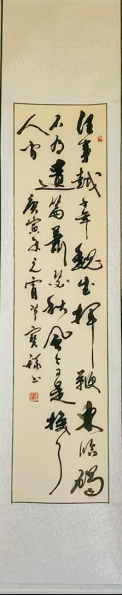 往事越千年魏武揮鞭東臨碣
石有遺篇蕭瑟秋風今又是換了
人间
庚寅年元宵节